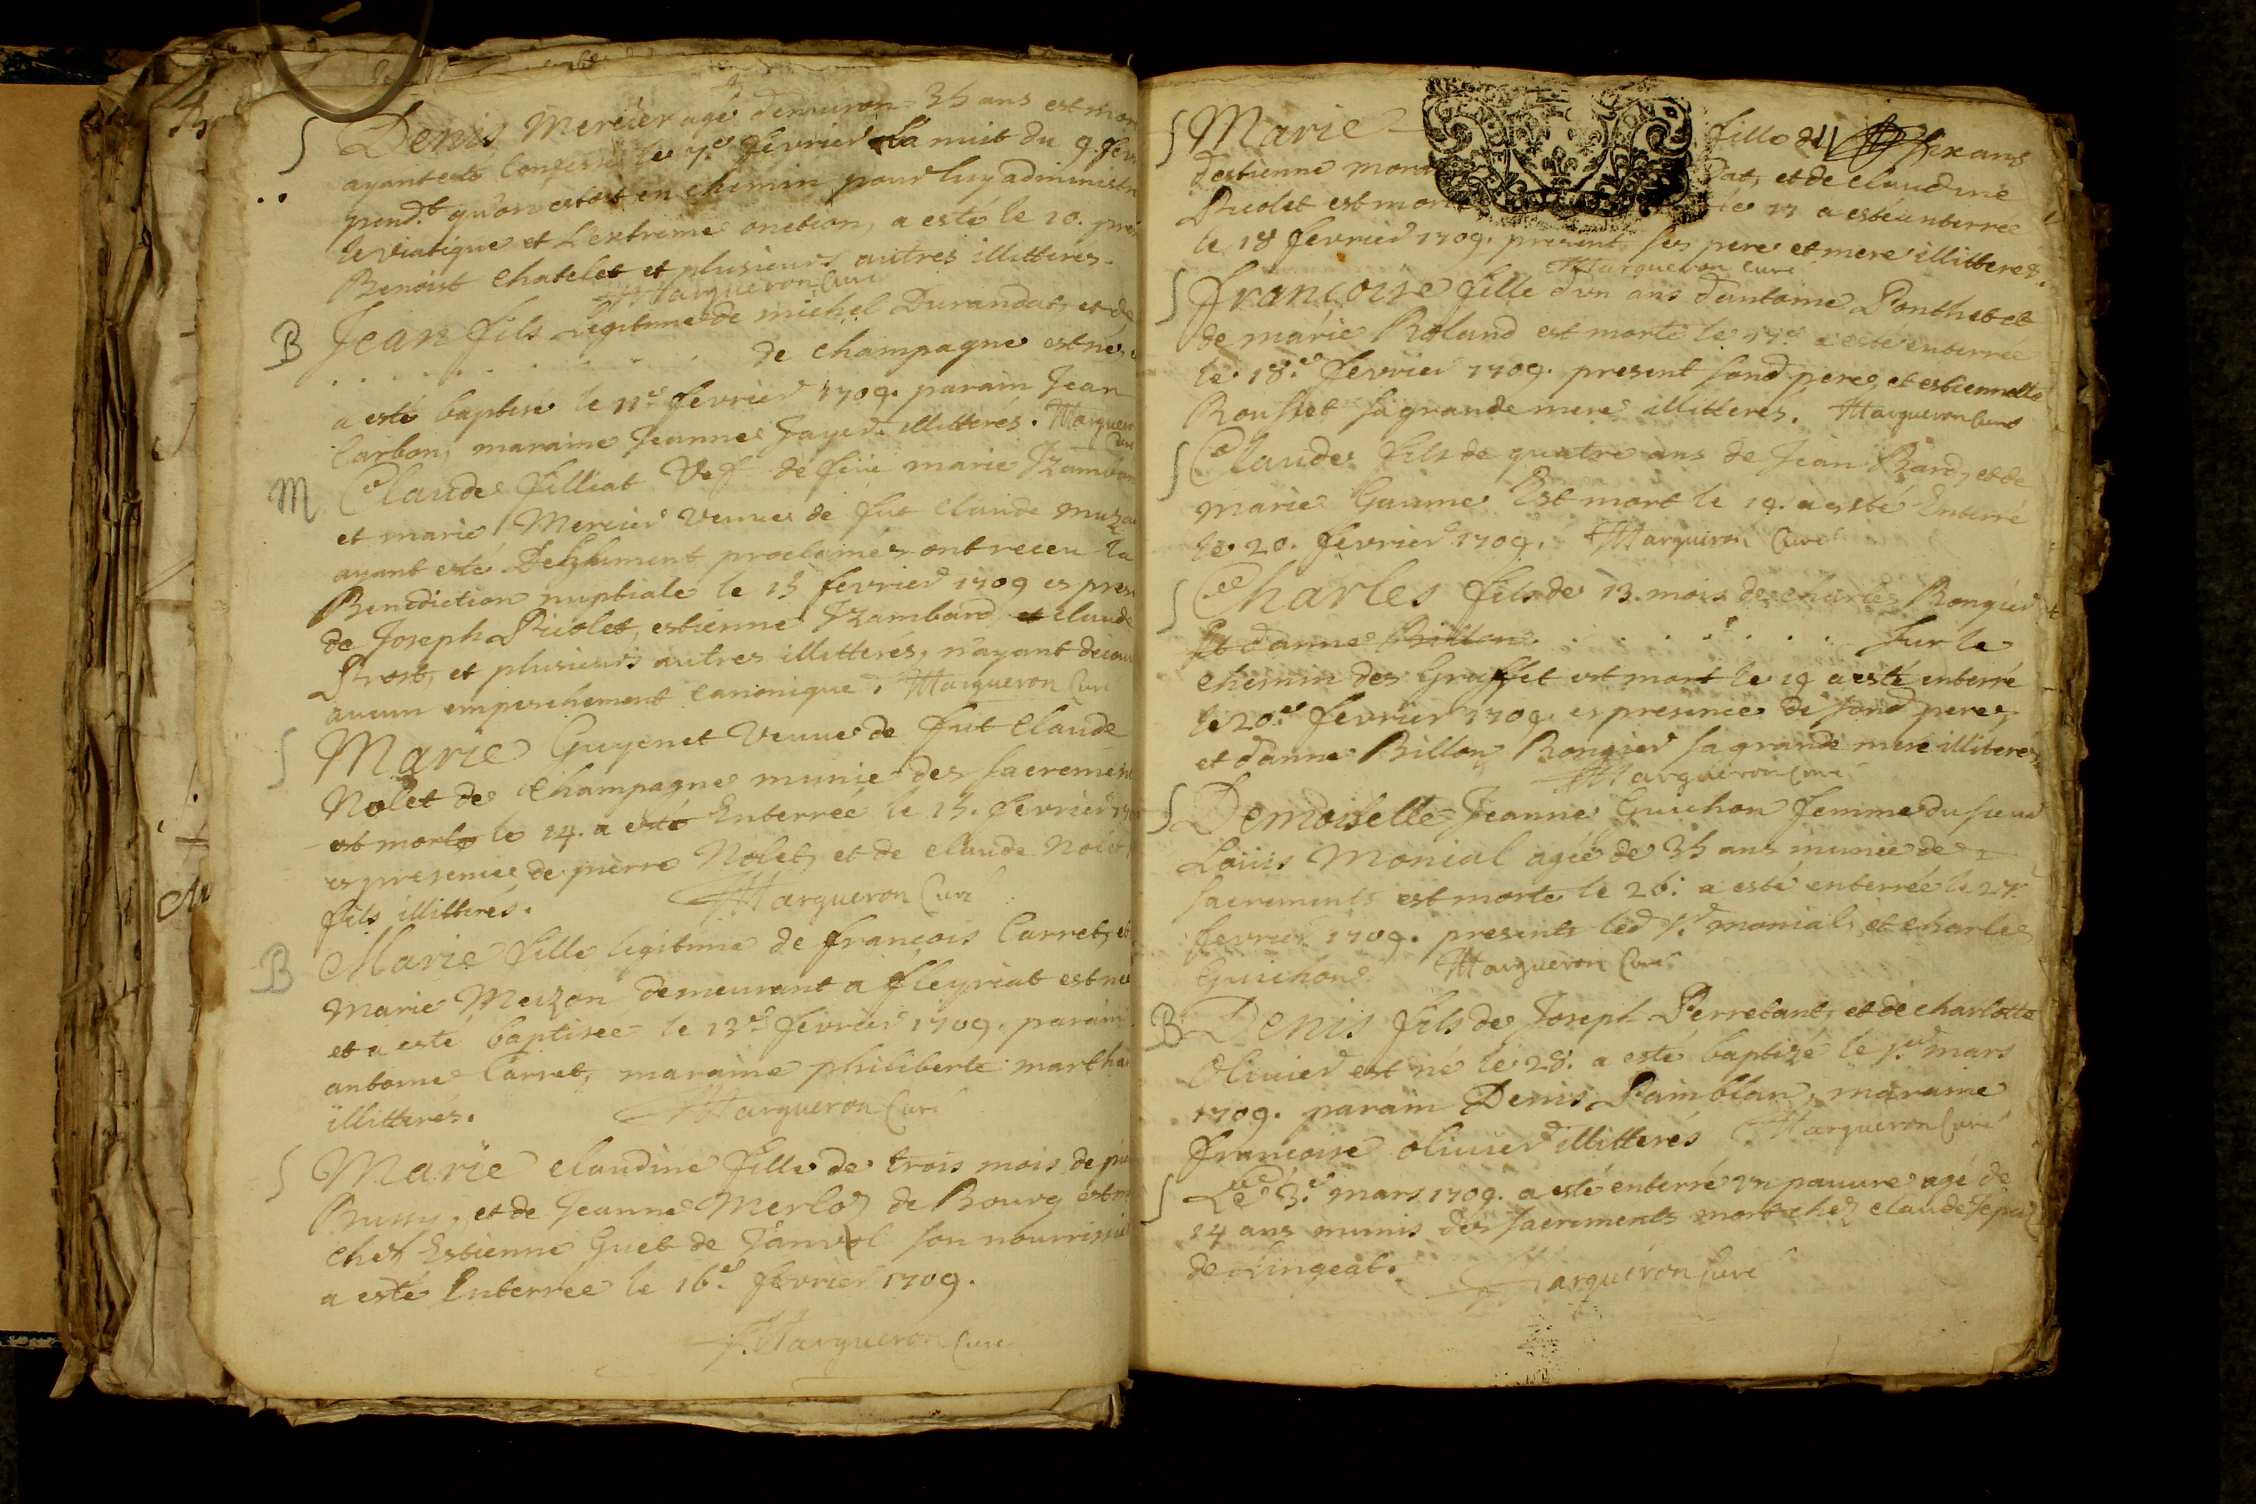 S Denis Mercier agé denuiron 35 ans est mor
ayant esté confessé le 7.e fevrier la nuit du 9. fev
pend.t qu'on estoit en chemin pour luy administr
le viatique et L'extreme onction, a esté le 10. pre
Benoist Chatelet et plusieurs autres illitterés.
Margueron Curé
B Jean fils Legitime de michel Durandat, et de
. . . . . . . . de champagne est né
a esté baptisé le 11.e fevrier 1709. parain Jean
Carbon, maraine Jeanne illitterés. Marguer
Curé
M Claude filliat Vef de füe marie Rambar
et marie Mercier veuue de fut Claude
ayant esté proclamés ont receu la
Benediction nuptiale le 13 fevrier 1709 es pres
de Joseph Picolet, estienne Rambard, et Claude
Prost, et plusieurs autres illitterés, n'ayant decou
aucun empeschement Canonique. Margueron Curé
S Marie Guyenet veuue de fut Claude
Nolet de Champagne munie des sacrement
est morte le 14. a esté Enterreé le 15. fevrier 17
es presence de pierre Nolet, et de Claude Nolet
fils illitterés. Margueron Curé
B Marie fille legitime de françois Carret, et
Marie Meuzon demeurant a fleyriat est neé
et a esté baptisée le 13.e fevrier 1709. parain
antoine Carret, maraine philiberte martha
illitterés. Margueron Curé
S Marie claudine fille de trois mois de pie
Bussy, et de Jeanne Merloz de Bourg est m
chez Estienne Guet de son nourrissie
a esté Enterreé le 16.e fevrier 1709.
Margueron Curé
S Marie fille de six ans
d'estienne mor dat, et de claudine
Picolet est mor le 17 a esté enterreé
le 18 fevrier 1709. present ses pere et mere illitterés.
Margueron Curé
S Françoise fille d'un ans d'antoine Ponthet et
de marie Roland est morte le 17.e a esté enterreé
le 18.e fevrier 1709. present sond pere, et estiennette
Rousset sa grande mere illitterés. Margueron Curé
S Claude fils de quatre ans de Jean Bard, et de
marie Gaume Est mort le 19. a esté Enterré
le 20. fevrier 1709. Margueron Curé
S Charles fils de 13. mois de charles Rongier
Et d'anne Billon . . . . . . . . sur le
chemin des Graffet est mort le 19 a esté enterré
le 20.e fevrier 1709. es presence de sond pere,
et d'anne Billon Rongier sa grande mere illiterés
Margueron Curé
S Demoiselle Jeanne Guichon femme du sieur
Loüis Monial agée de 35 ans munie de
sacrements est morte le 26. a esté enterrée le 27.
fevrier 1709. presents led s.r monial, et charles
Guichon Margueron Curé
B Denis fils de Joseph Perretant, et de charlotte
Oliuier est né le 28. a esté baptizé le 1.er mars
1709. parain Denis Pamblan, maraine
françoise oliuier illitterés Margueron Curé
S Le 3.e mars 1709. a esté enterré un pauure agé de
14 ans munis des sacrements mort chez claude
de Margueron Curé